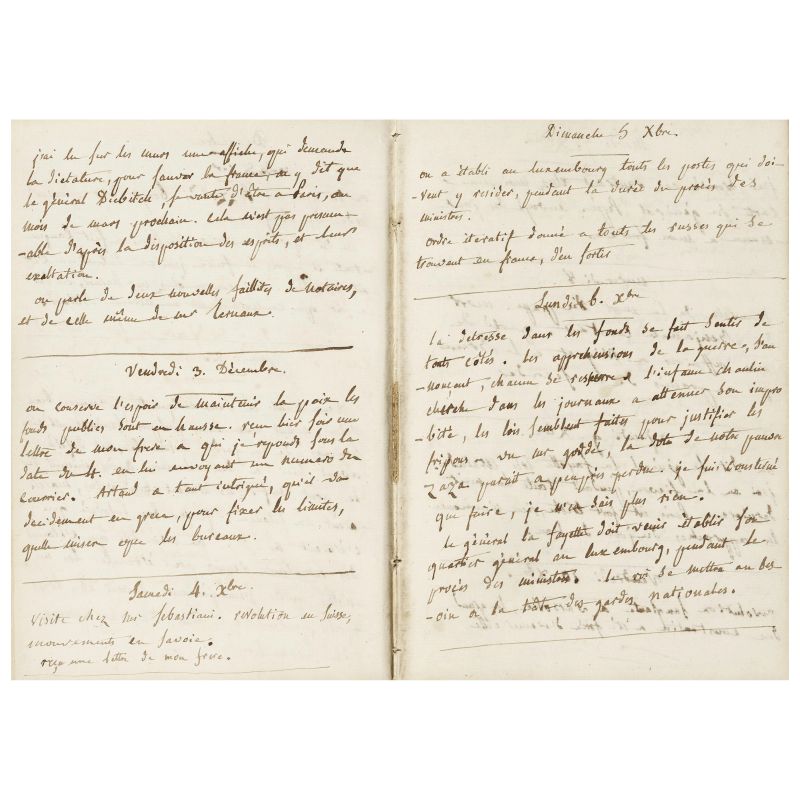 j'ai lu sur les murs une affiche, qui demande
la dictature, pour sauver la france, on y dit que
le général Diebitch, se vante d'être a Paris, au
mois de mars prochain. cela n'est pas presum-
-able d'après la disposition des esprits, et leur
exaltation.
on parle de deux nouvelles faillites de notaires,
et de celle même de mr ternaux.
Vendredi 3. Décembre.
on conserve l'espoir de maintenir la paix les
fonds publics sont en hausse. reçu hier soir une
lettre de mon frere a qui je reponds sous la
date du 4. en lui envoyant un numero du
courrier. Artaud a tant intrigué, qu'il va
decidement en grece, pour fixer les limites,
quelle misere que les bureaux.
Samedi 4. Xbre.
Visite chez mr Sebastiani. revolution en Suisse,
mouvements en Savoie.
reçu une lettre de mon frere.
Dimanche 5 Xbre.
on a établi au luxembourg touts les postes qui doi-
-vent y resider, pendant la durée du procès des
ministres.
ordre iteratif donné a touts les russes qui se
trouvent en france, d'en sortir
Lundi 6. Xbre
la detresse dans les fonds se fait sentir de
touts côtés. les apprehensions de la guerre, s'an-
-nonçant, chacun se resserre, l'infame chaulin
cherche dans les journaux a attenuer son impro-
-bité, les lois semblent faites pour justifier les
fripons. vu mr goddé, la dote de notre pauvre
zaza parait a peu près perdue. je suis consterné
que faire, je n'en sais plus rien.
le général la fayette doit venir établir son
quartier général au luxembourg, pendant le
procès des ministres. le roi se mettre au bes-
-oin a la tête des gardes nationales.